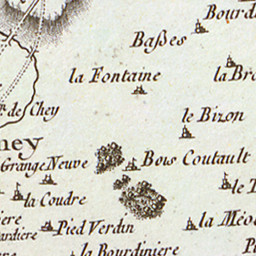 Bourd
Baſses
la Fontaine
la Bro
de Chey
le Bizon
ney
Grange Neuve
Bois Coutault
la Coudre
le
iere
ardiere
Pied Verdin
la Méo
la Bourdiniere